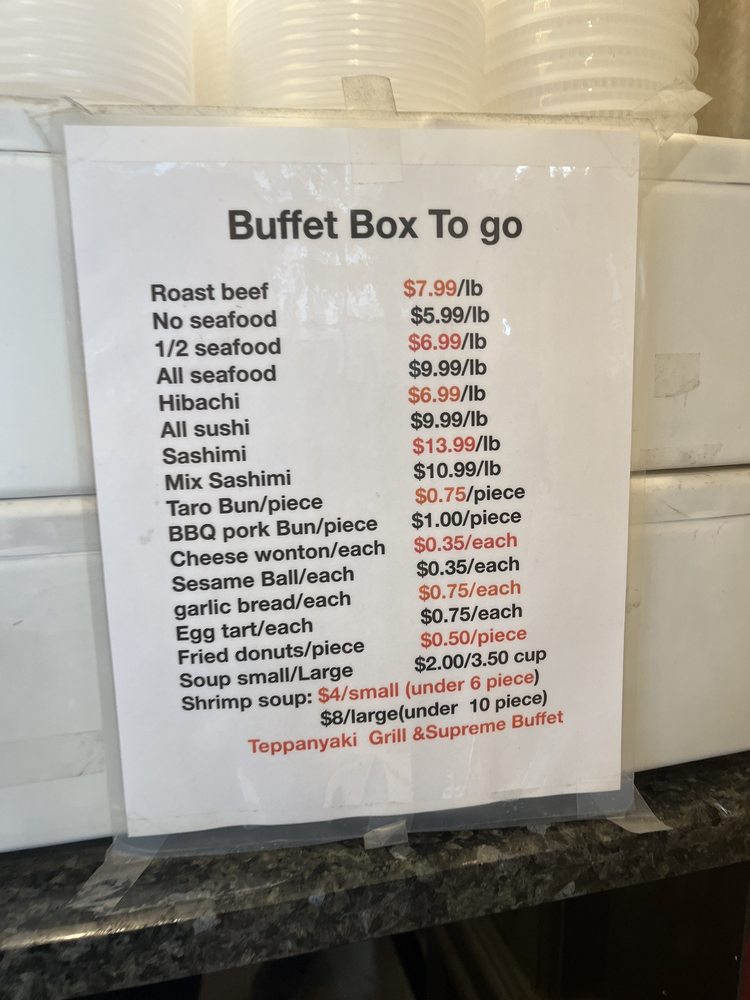 Buffet Box To go
Roast beef $7.99/lb
No seafood $5.99/lb
1/2 seafood $6.99/lb
All seafood $9.99/lb
Hibachi $6.99/lb
All sushi $9.99/lb
Sashimi $13.99/lb
Mix Sashimi $10.99/lb
Taro Bun/piece $0.75/piece
BBQ pork Bun/piece $1.00/piece
Cheese wonton/each $0.35/each
Sesame Ball/each $0.35/each
garlic bread/each $0.75/each
Egg tart/each $0.75/each
Fried donuts/piece $0.50/piece
Soup small/Large $2.00/3.50 cup
Shrimp soup: $4/small (under 6 piece)
$8/large(under 10 piece)
Teppanyaki Grill &Supreme Buffet